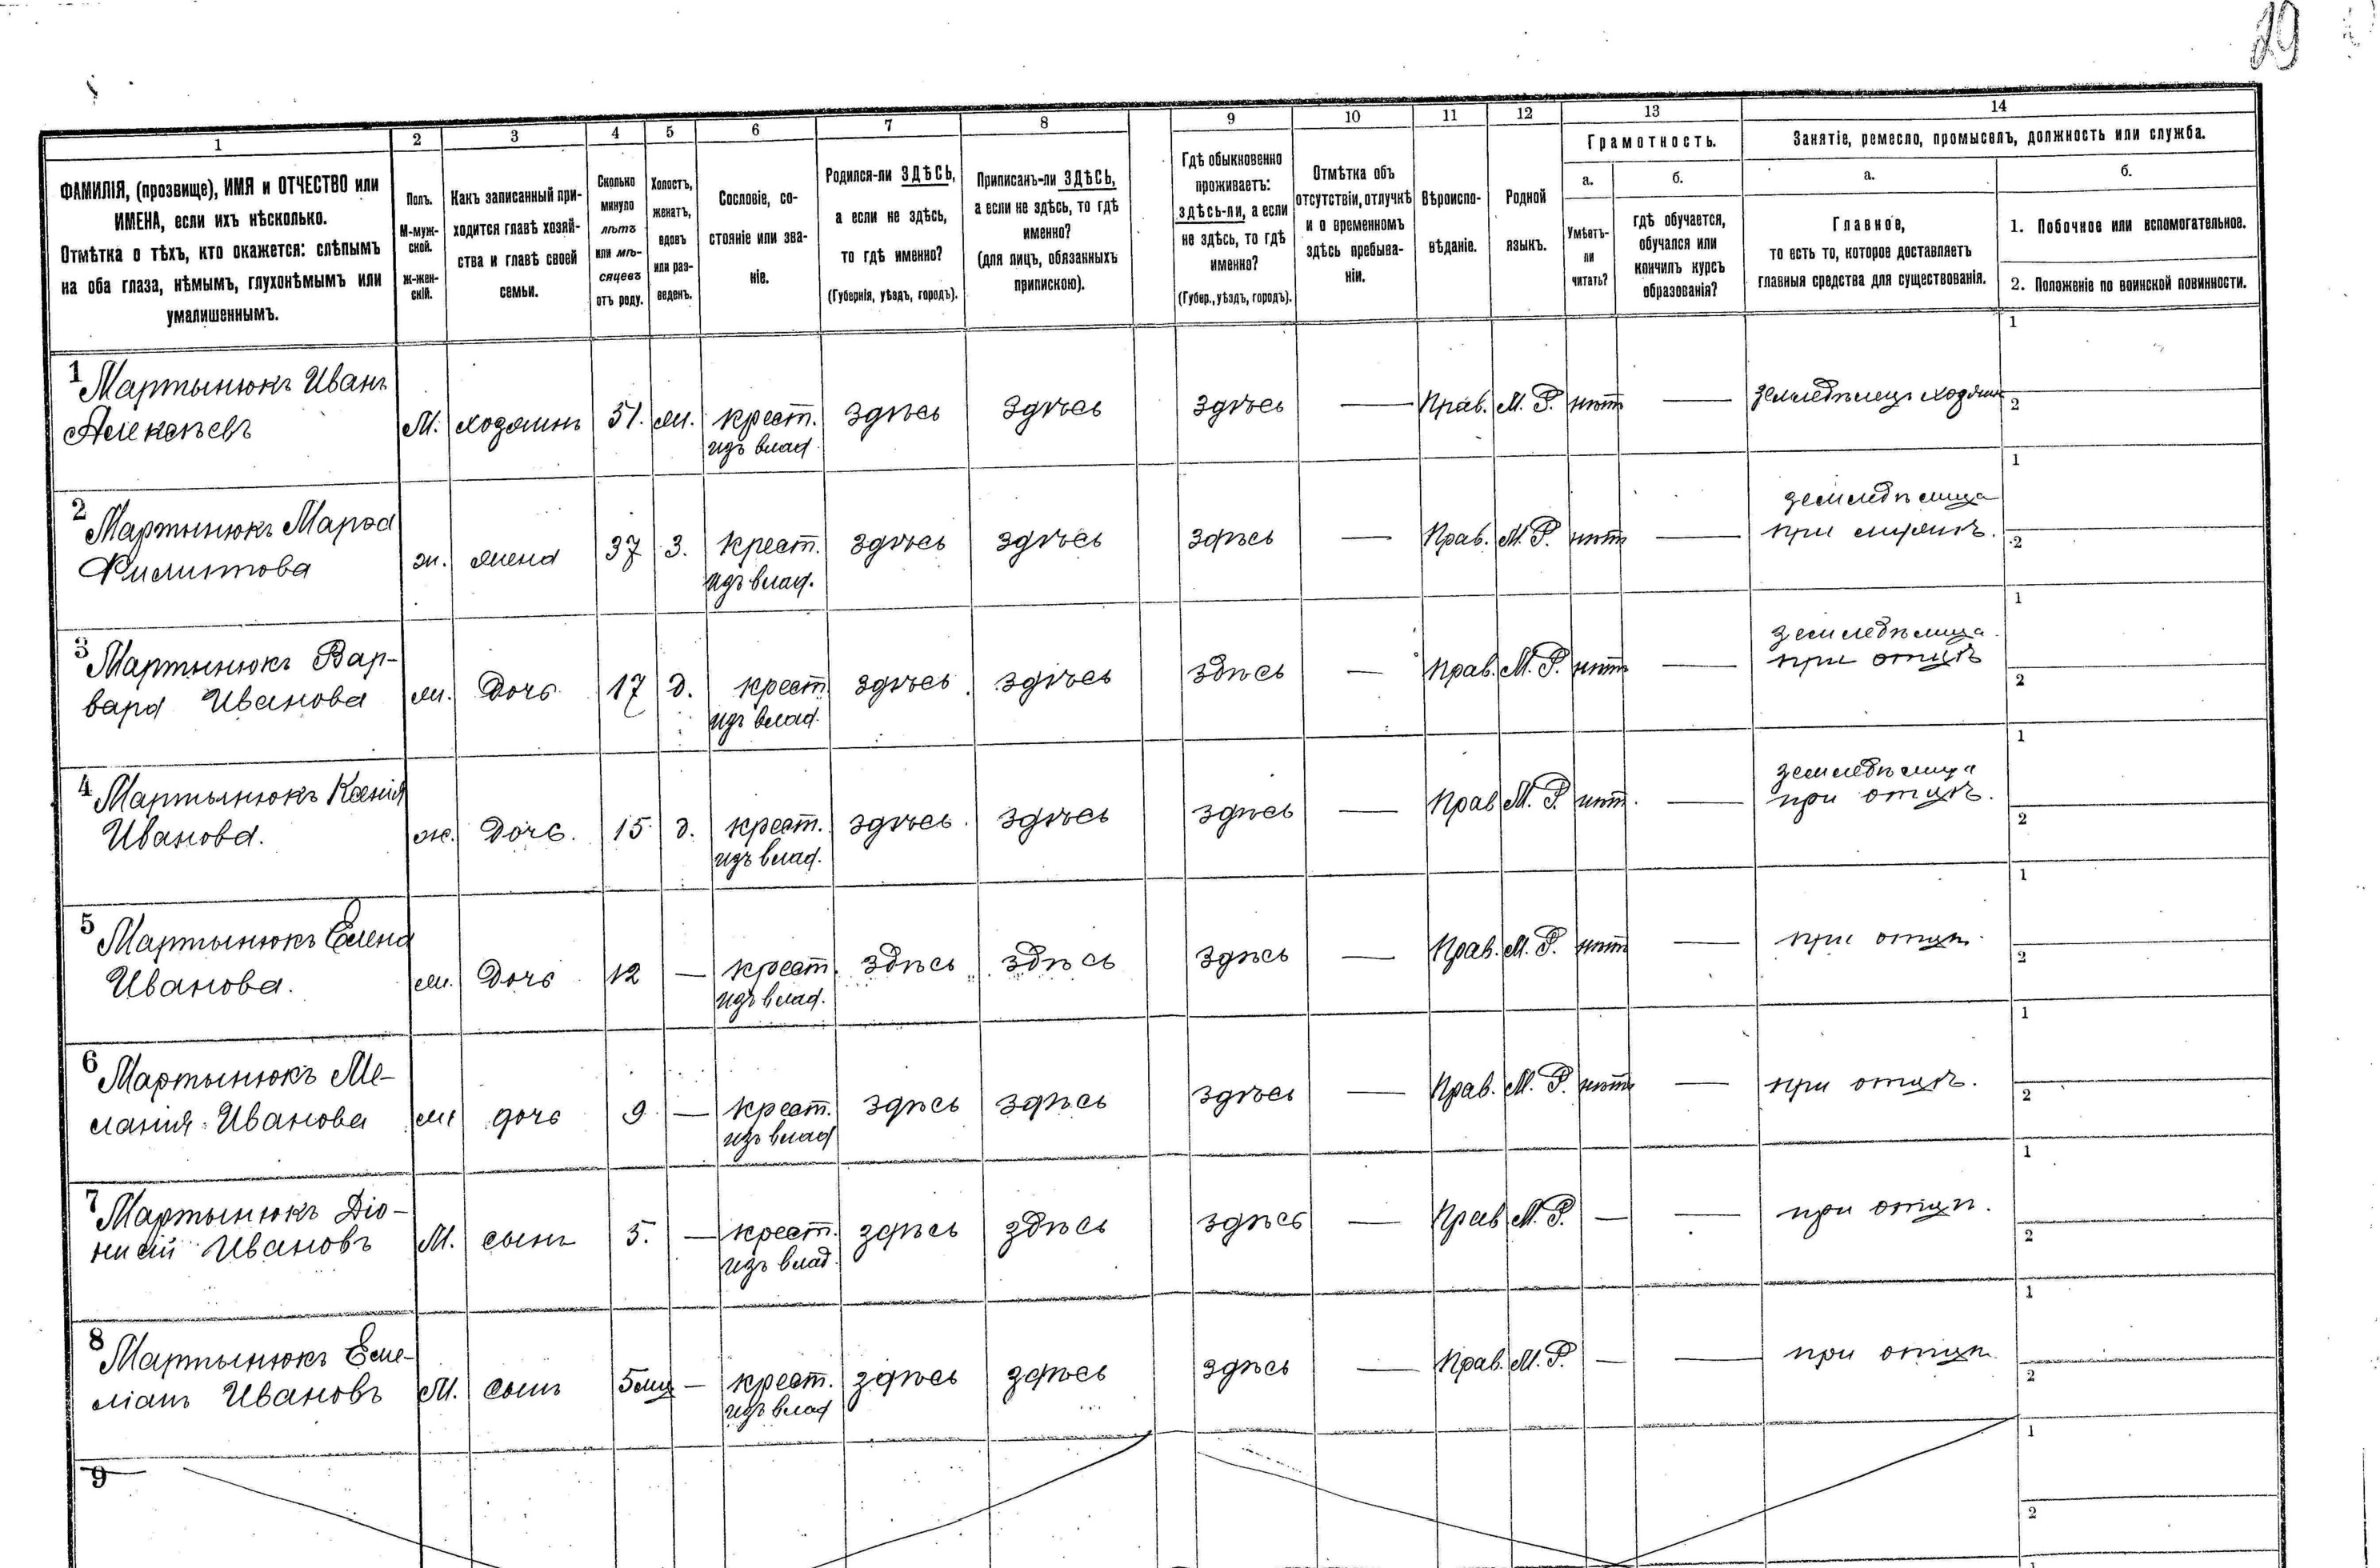 29
1 2 3 4 5 6 7 8 9 10 11 12 13 14
ФАМИЛІЯ, (прозвище), ИМЯ и ОТЧЕСТВО или
ИМЕНА, если ихъ нѣсколько.
Отмѣтка о тѣхъ, кто окажется: слѣпымъ
на оба глаза, нѣмымъ, глухонѣмымъ или
умалишеннымъ.
Полъ.
М-муж-
ской.
Ж-жен-
скій.
Какъ записанный при-
ходится главѣ хозяй-
ства и главѣ своей
семьи.
Сколько
минуло
лѣтъ
или мѣ-
сяцевъ
отъ роду.
Холостъ,
женатъ,
вдовъ
или раз-
веденъ.
Сословіе, со-
стояніе или зва-
ніе.
Родился-ли ЗДѢСЬ,
а если не здѣсь,
то гдѣ именно?
(Губернія, уѣздъ, городъ).
Приписанъ-ли ЗДѢСЬ,
а если не здѣсь, то гдѣ
именно?
(для лицъ, обязанныхъ
припискою).
Гдѣ обыкновенно
проживаетъ:
здѣсь-ли, а если
не здѣсь, то гдѣ
именно?
(Губер., уѣздъ, городъ).
Отмѣтка объ
отсутствіи, отлучкѣ
и о временномъ
здѣсь пребыва-
ніи.
Вѣроиспо-
вѣданіе.
Родной
языкъ.
Грамотность.
а.
Умѣетъ-
ли
читать?
б.
гдѣ обучается,
обучался или
кончилъ курсъ
образованія?
Занятіе, ремесло, промыселъ, должность или служба.
а.
Главное,
то есть то, которое доставляетъ
главныя средства для существованія.
б.
1. Побочное или вспомогательное.
2. Положеніе по воинской повинности.
1 Мартынюкъ Иванъ
Алексѣевъ М. хозяинъ 51. ж. крест. здѣсь здѣсь здѣсь — Прав. М. Р. нѣтъ — земледѣлецъ хозяинъ
изъ влад.
1
2
2 Мартынюкъ Марѳа
Филиппова ж. жена 37 З. крест. здѣсь здѣсь здѣсь — Прав. М. Р. нѣтъ — земледѣлица
изъ влад. при
1
2
3 Мартынюкъ Вар-
вара Иванова ж. Дочь 17 д. крест. здѣсь здѣсь здѣсь — Прав. М. Р. нѣтъ — земледѣлица
изъ влад. при отцѣ
1
2
4 Мартынюкъ Ксенія
Иванова. ж. Дочь. 15 д. крест. здѣсь здѣсь здѣсь — Прав М. Р. нѣтъ. — земледѣлица
изъ влад. при отцѣ.
1
2
5 Мартынюкъ Елена
Иванова. ж. Дочь 12 — крест. здѣсь здѣсь здѣсь — Прав. М. Р. нѣтъ — при отцѣ.
изъ влад.
1
2
6 Мартынюкъ Ме-
ланія Иванова ж. дочь 9 — крест. здѣсь здѣсь здѣсь — Прав. М. Р. нѣтъ — при отцѣ.
изъ влад
1
2
7 Мартынюкъ Діо-
нисій Ивановъ М. сынъ 5. — крест. здѣсь здѣсь здѣсь — Прав М. Р. — — при отцѣ.
изъ влад.
1
2
8 Мартынюкъ Еме-
ліанъ Ивановъ М. сынъ 5 мц — крест. здѣсь здѣсь здѣсь — Прав. М. Р. — — при отцѣ
изъ влад
1
2
9
1
2